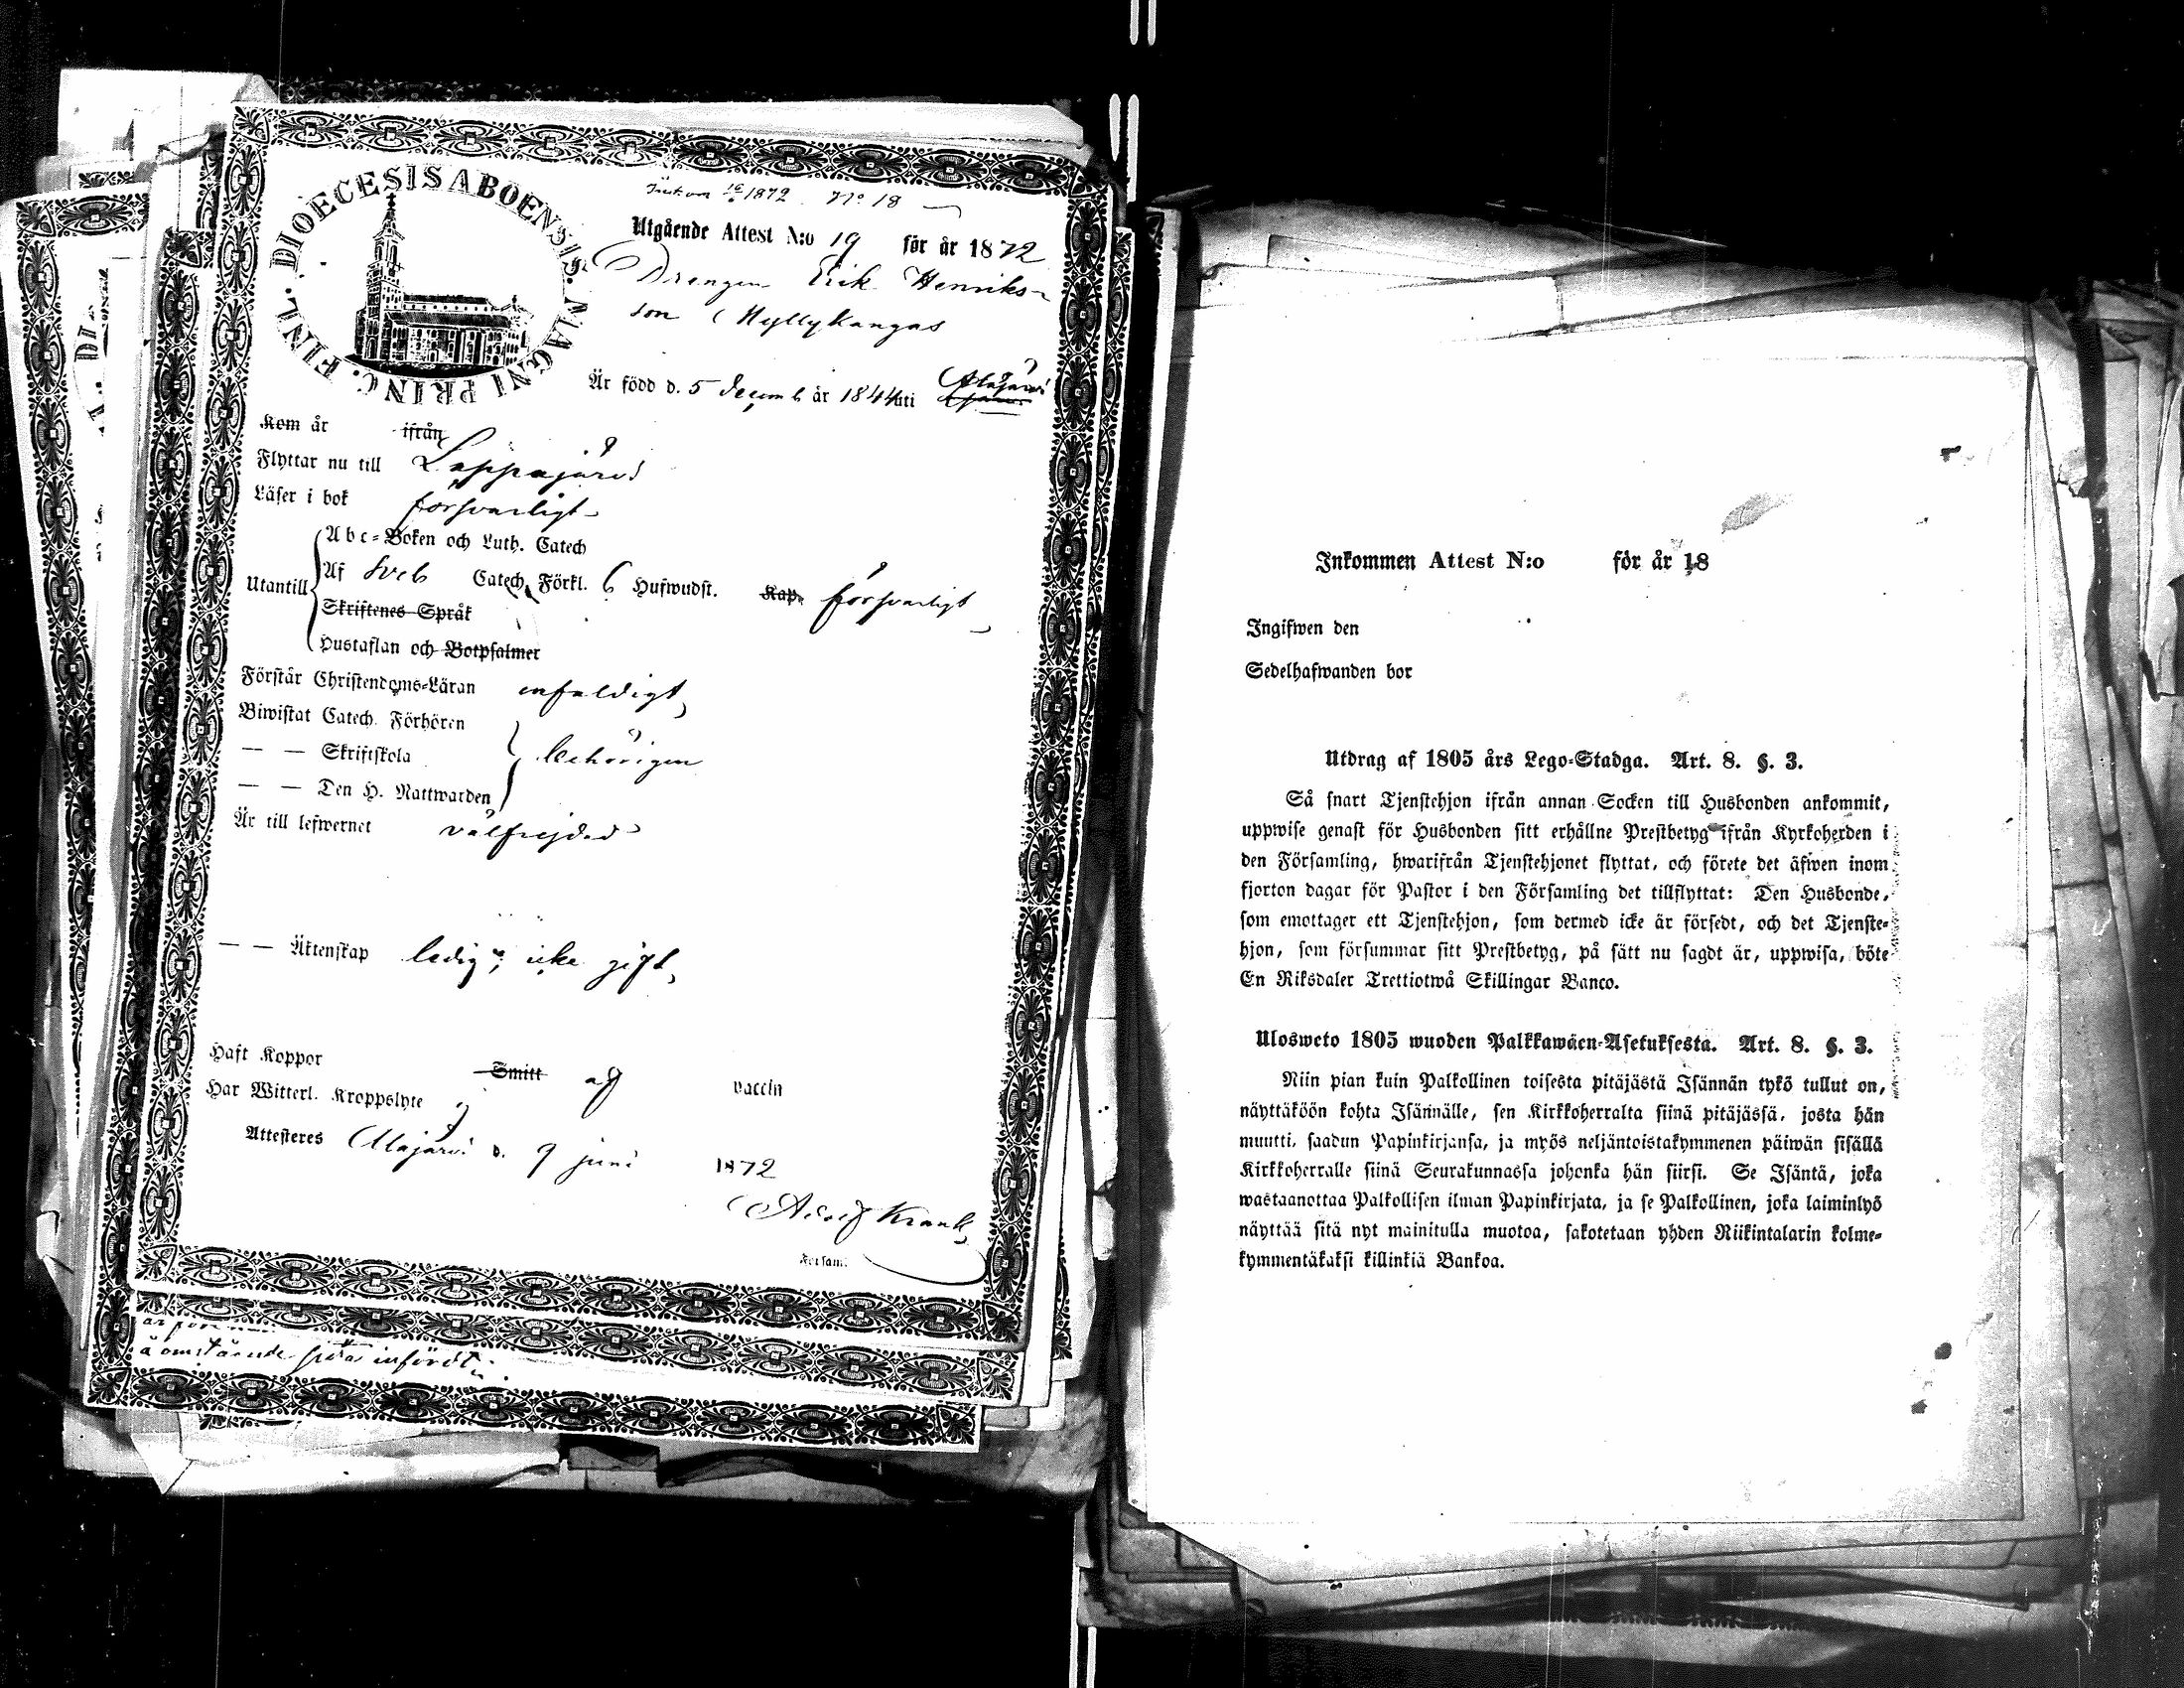 DIOECESIS ABOENSIS. MAGNI PRINC. FINL.
Inkom 1872. No 18
Utgående Attest N:o 19 för år 1872
Drengen Erik Henriks-
son Myllykangas
Är född d. 5 decemb år 1844 uti Alajärvi
Kom år ifrån
Flyttar nu till Lappajärvi
Läser i bok försvarligt
Abc-Boken och Luth. Catech
Utantill Af Sveb Catech. Förkl. 6 Hufwudst. Kap. försvarligt
Skriftenes Språk
Hustaflan och Botpsalmer
Förstår Christendoms-Läran enfaldigt
Biwistat Catech. Förhören
— — Skriftskola behörigen
— — Den H. Nattwarden
Är till lefwernet välfrejdad
— — Äktenskap ledig; icke gift
Haft Koppor Smitt af vaccin
Har Witterl. Kroppslyte ej
Attesteres Alajärvi d. 9 juni 1872
Adolf Krank
Försam.
å omstående sida infördt
Inkommen Attest N:o för år 18
Ingifwen den
Sedelhafwanden bor
Utdrag af 1805 års Lego-Stadga. Art. 8. §. 3.
Så snart Tjenstehjon ifrån annan Socken till Husbonden ankommit,
uppwise genast för Husbonden sitt erhållne Prestbetyg ifrån Kyrkoherden i
den Församling, hwarifrån Tjenstehjonet flyttat, och förete det äfwen inom
fjorton dagar för Pastor i den Församling det tillflyttat: Den Husbonde,
som emottager ett Tjenstehjon, som dermed icke är försedt, och det Tjenste-
hjon, som försummar sitt Prestbetyg, på sätt nu sagdt är, uppwisa, böte
En Riksdaler Trettiotwå Skillingar Banco.
Ulosweto 1805 wuoden Palkkawäen-Asetuksesta. Art. 8. §. 3.
Niin pian kuin Palkollinen toisesta pitäjästä Isännän tykö tullut on,
näyttäköön kohta Isännälle, sen Kirkkoherralta siinä pitäjässä, josta hän
muutti, saadun Papinkirjansa, ja myös neljäntoistakymmenen päiwän sisällä
Kirkkoherralle siinä Seurakunnassa johonka hän siirsi. Se Isäntä, joka
wastaanottaa Palkollisen ilman Papinkirjata, ja se Palkollinen, joka laiminlyö
näyttää sitä nyt mainitulla muotoa, sakotetaan yhden Riikintalarin kolme-
kymmentäkaksi killinkiä Bankoa.